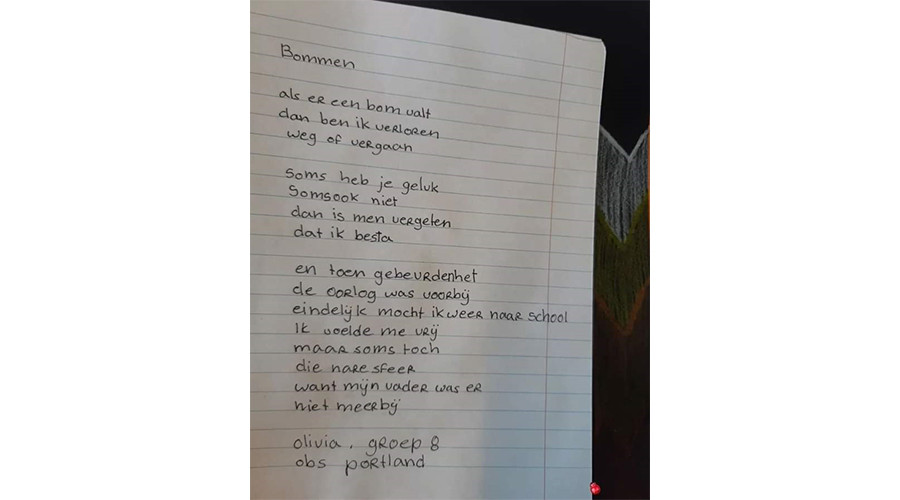 Bommen
als er een bom valt
dan ben ik verloren
weg of vergaan
soms heb je geluk
Somsook niet
dan is men vergeten
dat ik besta
en toen gebeurdenhet
de oorlog was voorbij
eindelijk mocht ikweer naar school
Ik voelde me vrij
maar soms toch
die nare sfeer
want mijn vader was er
niet meerbij
olivia. groep 8
obs portland